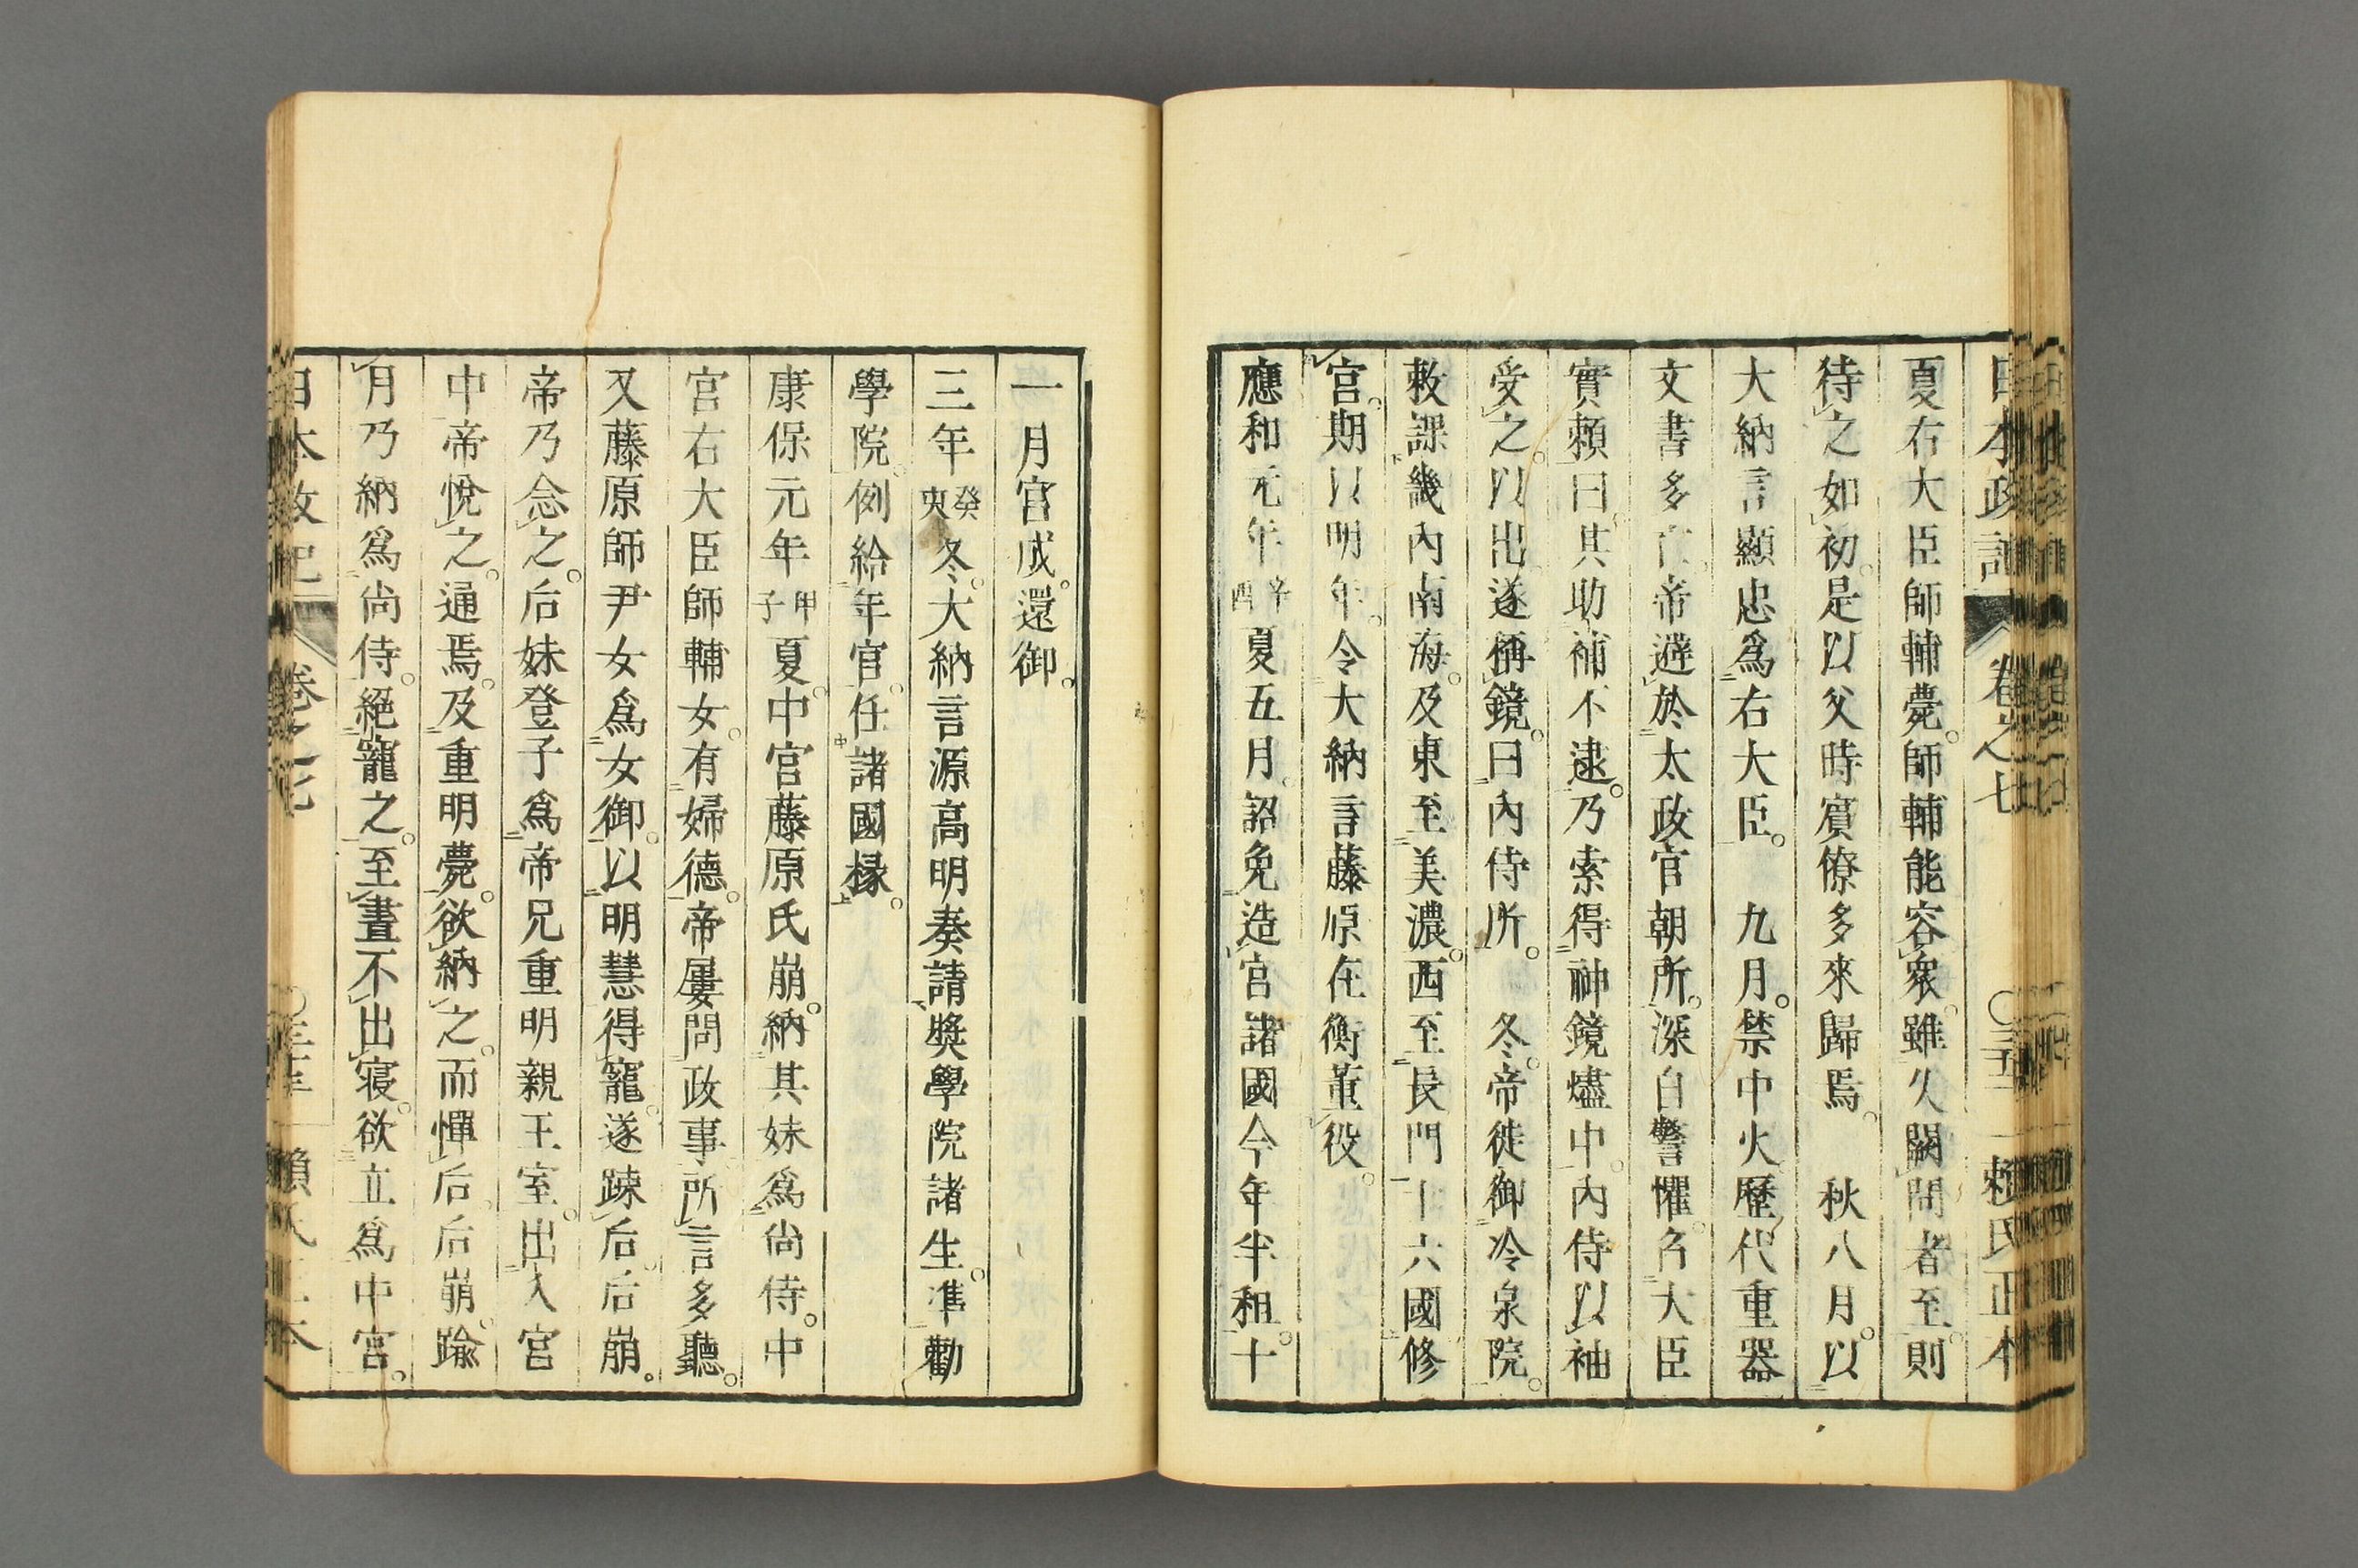 日本政記 卷之七 〇三十五 賴氏正本
夏右大臣師輔薨。師輔能容衆。雖久闕問者至。則
待之如初。是以父時賓僚多來歸焉。 秋八月。以
大納言顯忠爲右大臣。 九月。禁中火。歷代重器
文書多亡。帝避於太政官朝所。深自警懼。名大臣
實賴曰。其助補不逮。乃索得神鏡燼中。內侍以袖
受之。以出。遂稱鏡。曰內侍所。 冬。帝徙御冷泉院。
敕課畿內南海。及東至美濃。西至長門二十六國修
宮。期以明年。令大納言藤原在衡董役。
應和元年辛酉夏五月。詔免造宮諸國今年半租。十
一月宮成。還御。
三年癸亥冬。大納言源高明奏請奬學院諸生。準勸
學院。例給年官。任諸國掾。
康保元年甲子夏。中宮藤原氏崩。納其妹爲尚侍。中
宮右大臣師輔女。有婦德。帝屢問政事。所言多聽。
又藤原師尹女爲女御。以明慧得寵。遂踈后。后崩。
帝乃念之。后妹登子爲帝兄重明親王室。出入宮
中。帝悅之。通焉。及重明薨。欲納之。而憚后。后崩。踰
月乃納爲尚侍。絕寵之。至晝不出寢。欲立爲中宮。
日本政記 卷之七